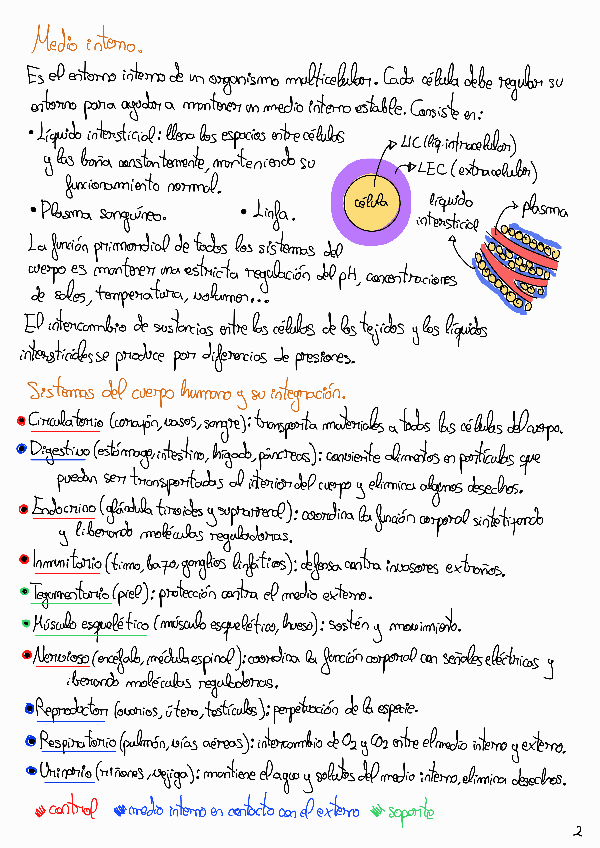 Medio interno.
Es el entorno interno de un organismo multicelular. Cada célula debe regular su
entorno para ayudar a mantener un medio interno estable. Consiste en:
• Líquido intersticial: llena los espacios entre células
y las baña constantemente, manteniendo su
funcionamiento normal.
LIC (líq. intracelular)
LEC (extracelular)
célula
líquido
intersticial
plasma
• Plasma sanguíneo. • Linfa.
La función primordial de todos los sistemas del
cuerpo es mantener una estricta regulación del pH, concentraciones
de sales, temperatura, volumen...
El intercambio de sustancias entre las células de los tejidos y los líquidos
intersticiales se produce por diferencias de presiones.
Sistemas del cuerpo humano y su integración.
• Circulatorio (corazón, vasos, sangre): transporta materiales a todas las células del cuerpo.
• Digestivo (estómago, intestino, hígado, páncreas): convierte alimentos en partículas que
puedan ser transportadas al interior del cuerpo y elimina algunos desechos.
• Endocrino (glándula tiroides y suprarrenal): coordina la función corporal sintetizando
y liberando moléculas reguladoras.
• Inmunitario (timo, bazo, ganglios linfáticos): defensa contra invasores extraños.
• Tegumentario (piel): protección contra el medio externo.
• Músculo esquelético (músculo esquelético, hueso): sostén y movimiento.
• Nervioso (encéfalo, médula espinal): coordina la función corporal con señales eléctricas y
liberando moléculas reguladoras.
• Reproductor (ovarios, útero, testículos): perpetuación de la especie.
• Respiratorio (pulmón, vías aéreas): intercambio de O2 y CO2 entre el medio interno y externo.
• Urinario (riñones, vejiga): mantiene el agua y solutos del medio interno, elimina desechos.
control medio interno en contacto con el externo soporte
2